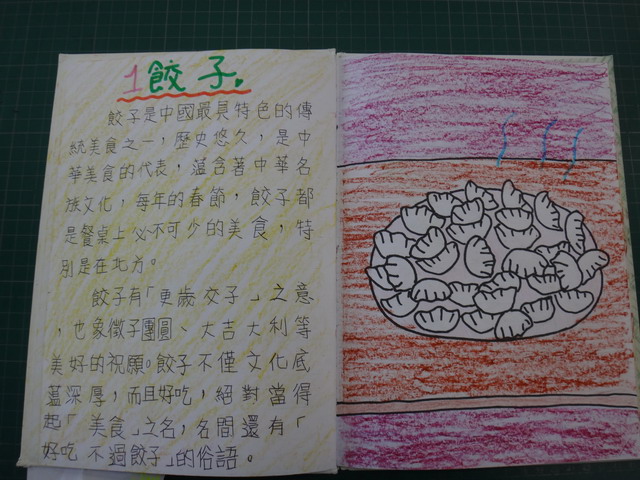 1餃子
餃子是中國最具特色的傳
統美食之一，歷史悠久，是中
華美食的代表，蘊含著中華名
族文化，每年的春節，餃子都
是餐桌上必不可少的美食，特
別是在北方。
餃子有「更歲交子」之意
，也象徵子團圓、大吉大利等
美好的祝願。餃子不僅文化底
蘊深厚，而且好吃，絕對當得
起「美食」之名，名間還有「
好吃不過餃子」的俗語。